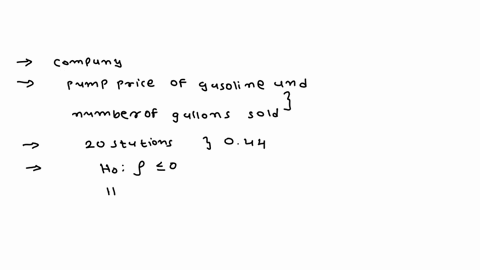 → company
→ pump price of gasoline und
number of gallons sold }
→ 20 stutions } 0.44
→ Ho: ρ ≤ 0
11